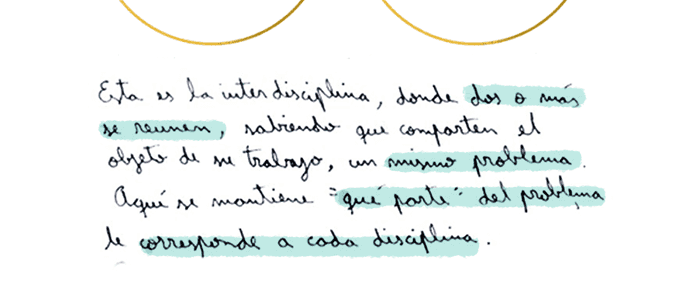 Esta es la interdisciplina, donde dos o más
se reunen, sabiendo que comparten el
objeto de su trabajo, un mismo problema.
Aquí se mantiene "qué parte" del problema
le corresponde a cada disciplina.